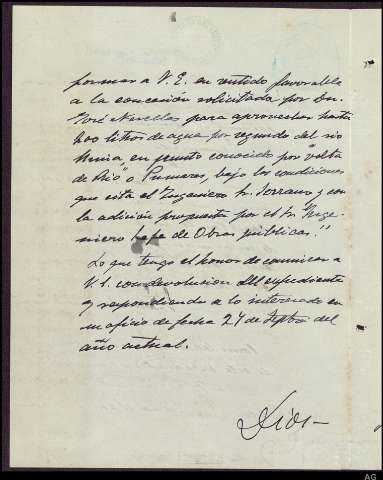 formar a V. E. en sentido favorable
a la concesión solicitada por Dn.
José para aprovechar hasta
200 litros de agua por segundo del río
en punto conocido por "volta
do Río" o Pumares, bajo las condiciones
que cita el Ingeniero Sr. Serrano y con
la adición propuesta por el Sr. Inge-
niero Jefe de Obras públicas."
Lo que tengo el honor de comunicar a
V. S. con devolución del expediente
y respondiendo a lo interesado en
su oficio de fecha 24 de Septbre del
año actual.
Dios